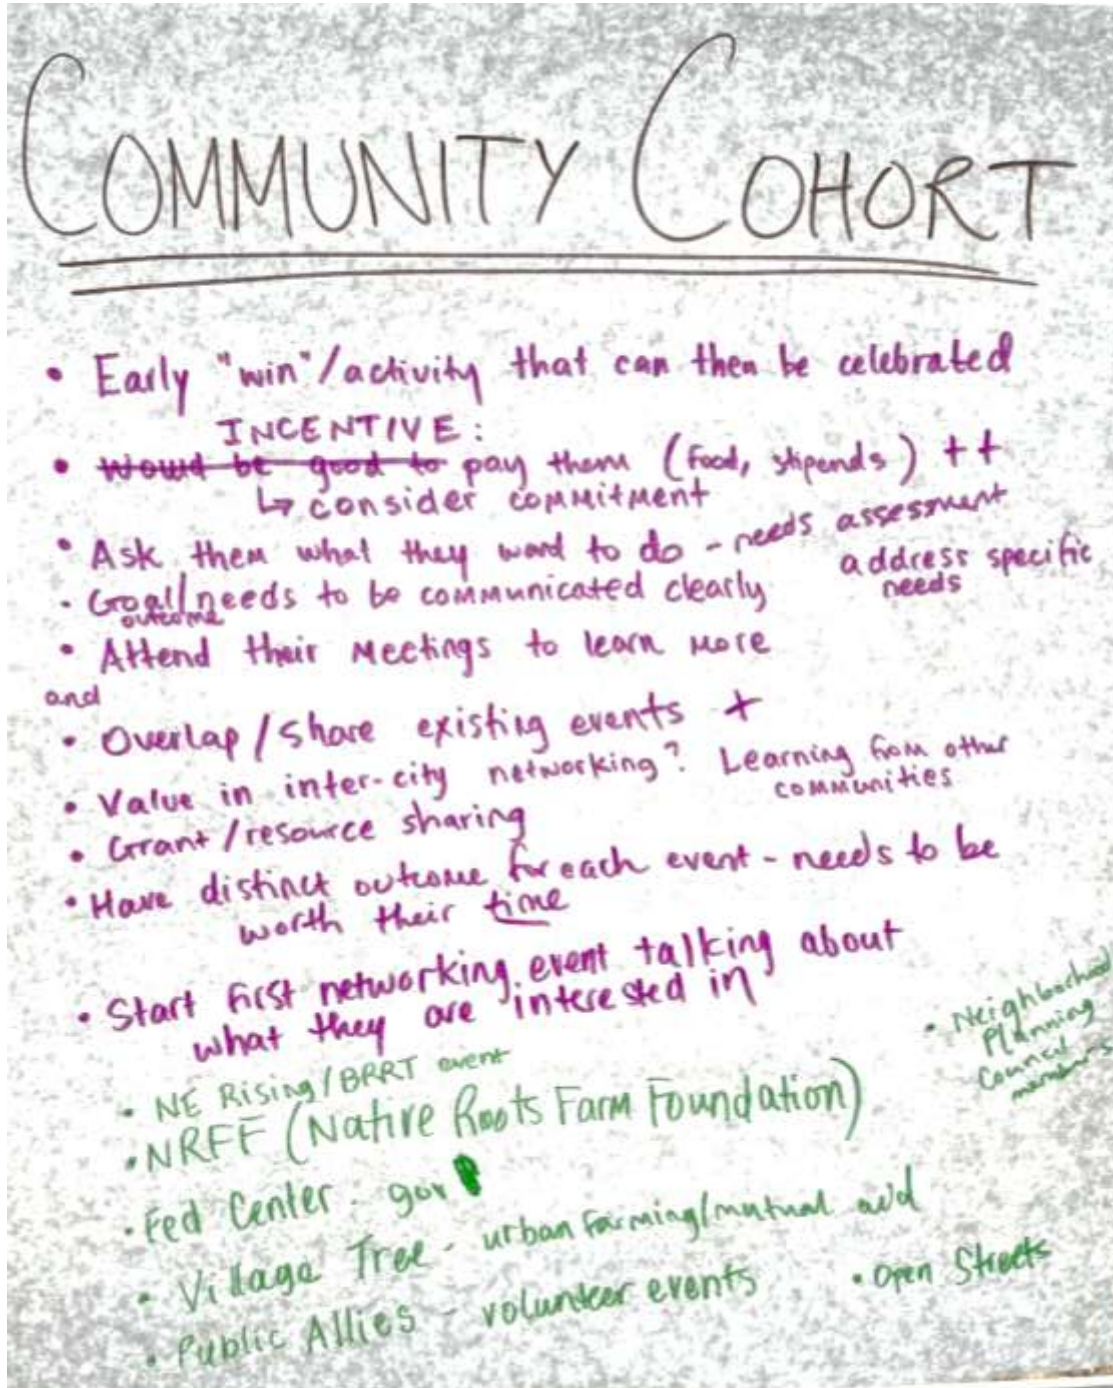 COMMUNITY COHORT
• Early "win"/activity that can then be celebrated
INCENTIVE:
• Would be good to pay them (food, stipends) ++
↳ consider commitment
• Ask them what they want to do - needs assessment
address specific
needs
• Goal/needs to be communicated clearly
outcome
• Attend their meetings to learn more
and
• Overlap/share existing events +
• Value in inter-city networking? Learning from other
communities
• Grant/resource sharing
• Have distinct outcome for each event - needs to be
worth their time
• Start first networking event talking about
what they are interested in
• Neighborhood
Planning
Council
members
• NE Rising/BRRT event
• NRFF (Native Roots Farm Foundation)
• Fed Center - gov
• Village Tree - urban farming/mutual aid
• Public Allies - volunteer events
• Open Streets